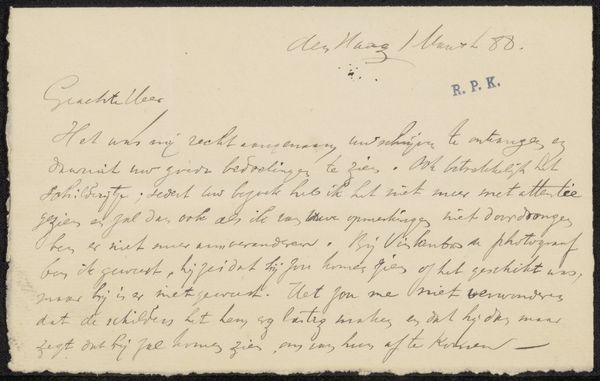 den Haag 1 Maart 88.
R. P. K.
Geachte Heer
Het was mij recht aangenaam uw schrijven te ontvangen en
daaruit uw goede bedoelingen te zien. Ook betrekkelijk het
schilderijtje; sedert uw bezoek heb ik het niet meer met attentie
gezien en zal dan ook als ik van uwe opmerkingen niet doordrongen
ben er niet meer aan veranderen. Bij photograaf
ben ik geweest, hij zei dat hij zou komen zien of het geschikt was,
maar hij is er niet geweest. Het zou me niet verwonderen
dat de schilders het hem erg lastig maken en dat hij dan maar
zegt dat hij zal komen zien, om van hun af te komen —